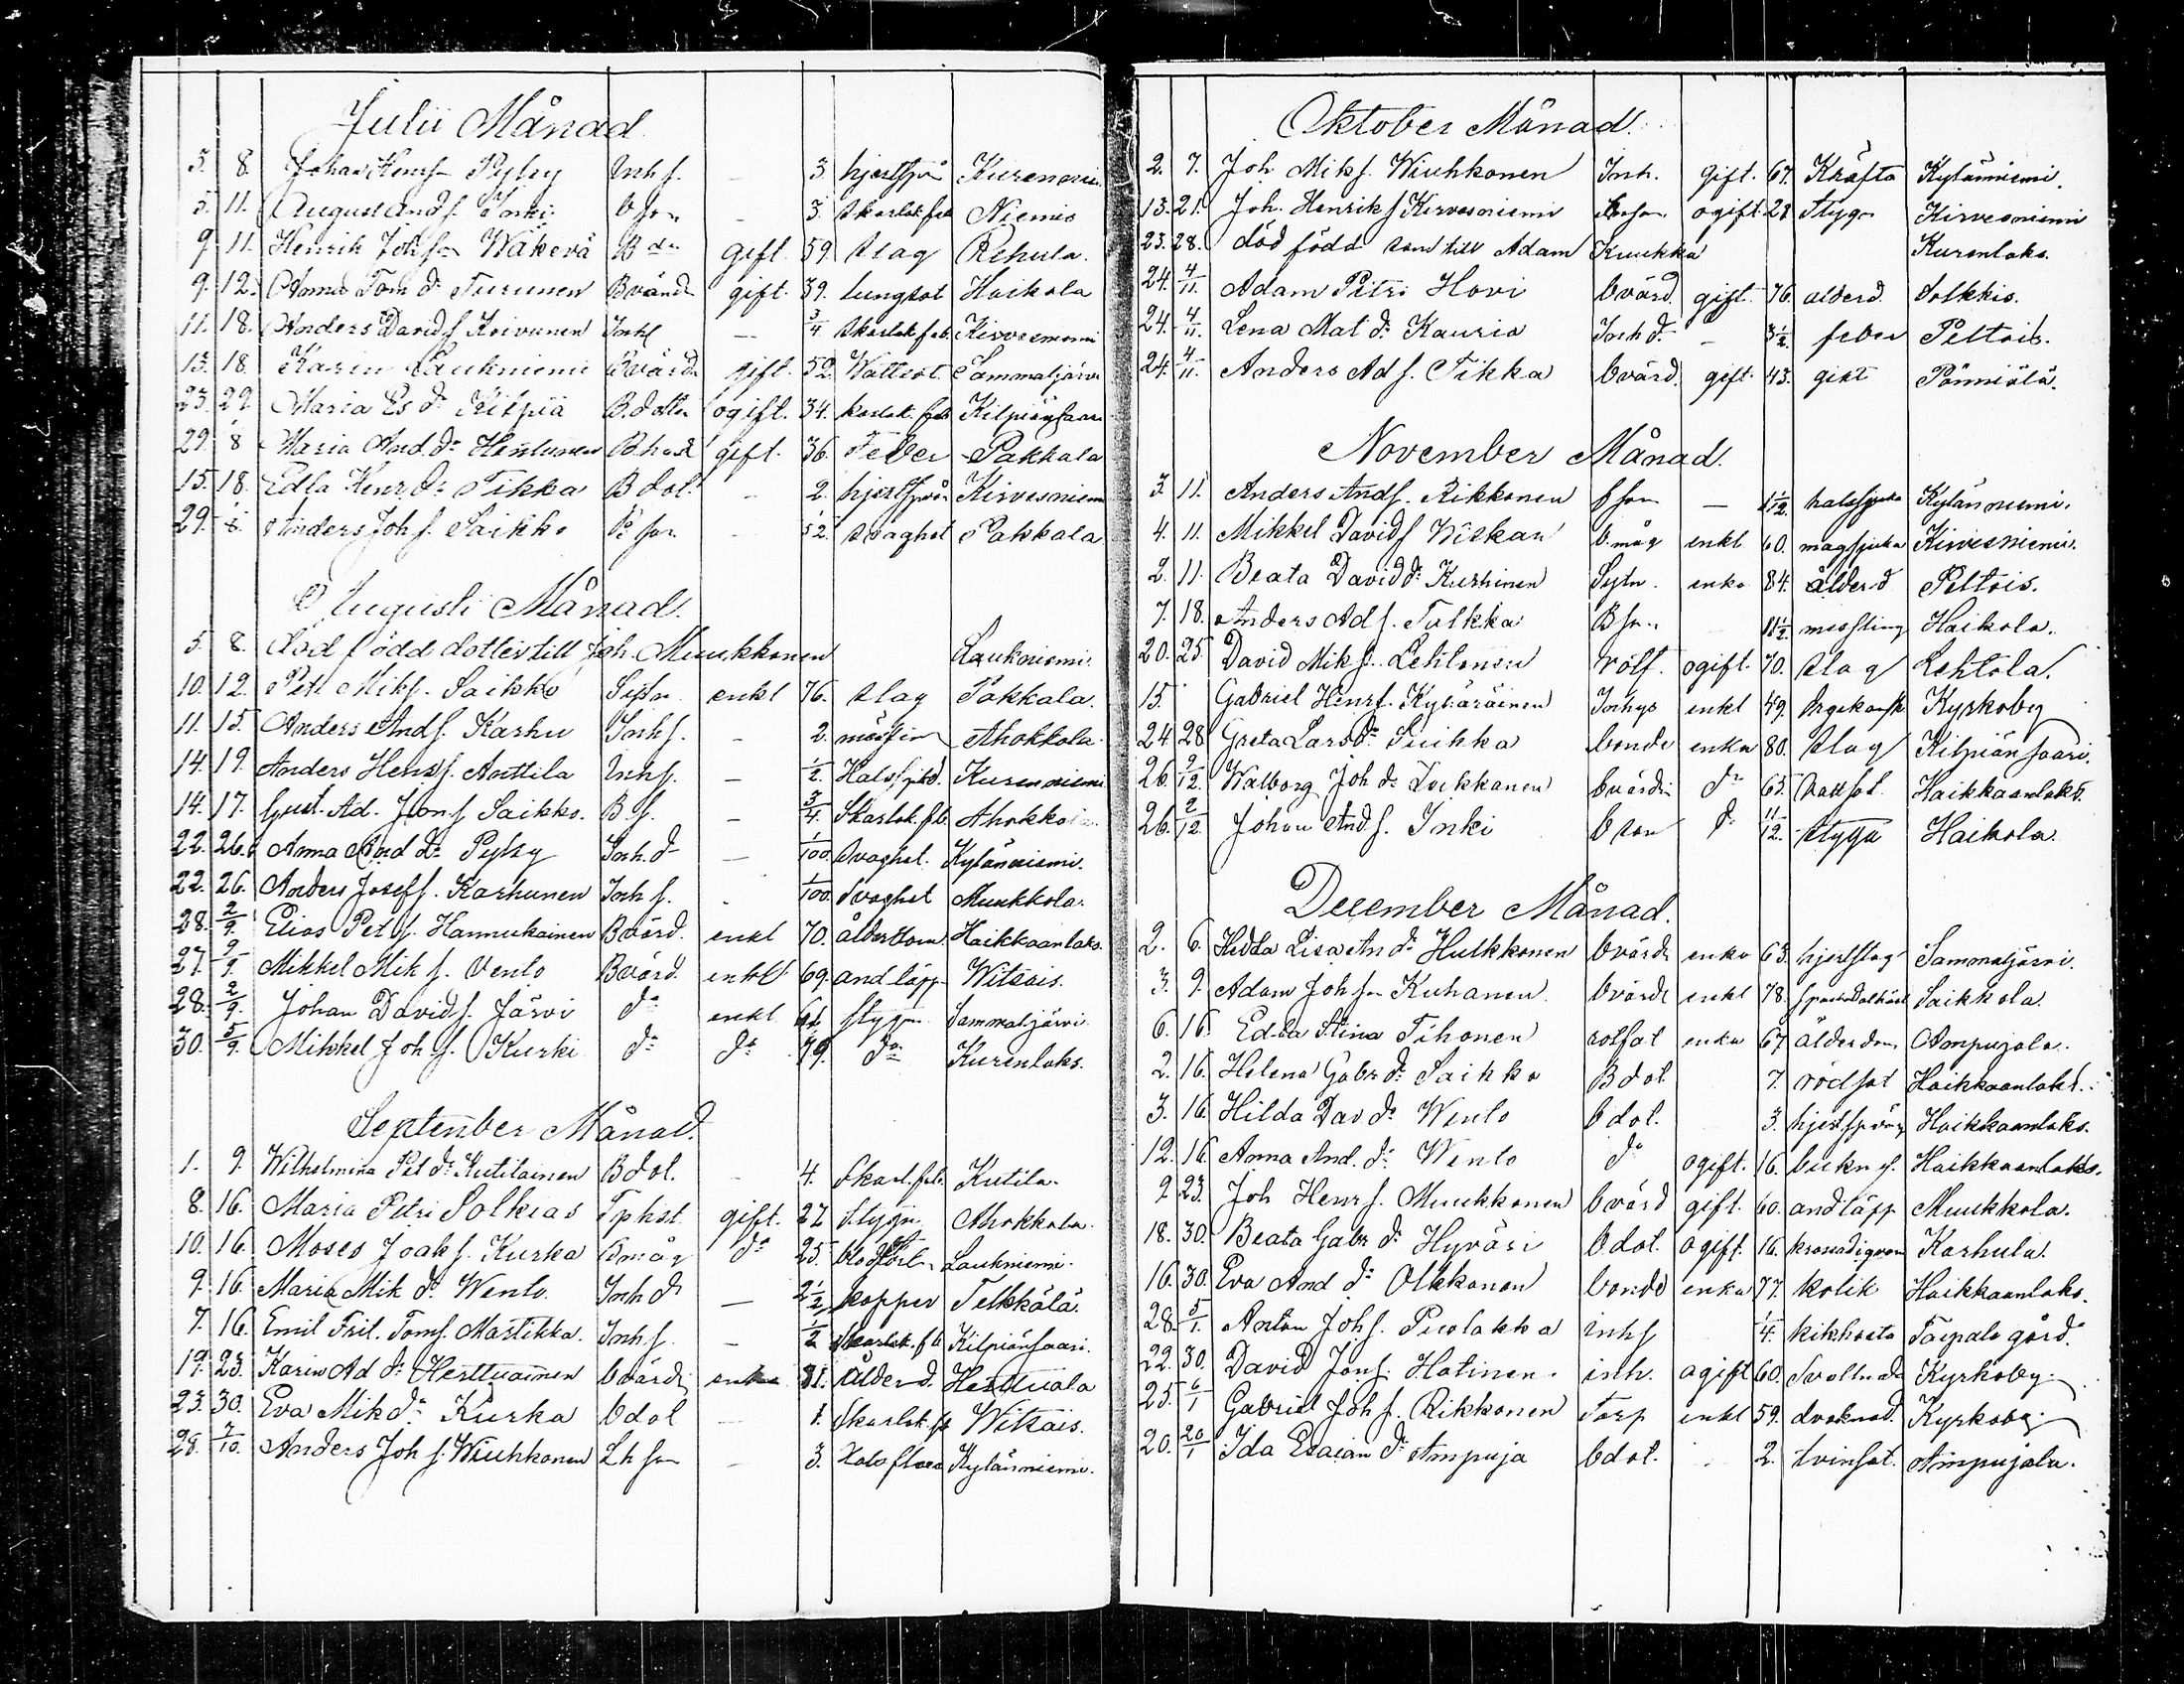 Julii Månad
5. 8. Johan Henrsn Pyhy Inh f. – 3. hjertspån Kurenniemi
5. 11. August Ands. Inki b son – 3. skarlak.feb Niemis
9. 11. Henrik Johsn Wäkevä B dn gift. 59. slag Rehula.
9. 12. Anna Tom dr Turunen B värd gift. 39. lungsot Haikola
11. 18. Anders Davids Koivunen Inhs — 3/4 skarlak feb. Kirvesniemi
13. 18. Karin Laukniemi B värd gift. 52. Wattsot. Sammaljärvi
23. 29. Maria Es dr Kilpiä B. dotter ogift. 34. karlak. feb Kilpiänsaari
29. 8 Maria And. dr Henlunen B. hust gift. 36. Feber Pakkala
15. 18. Edla Henr dr Tikka B dot. – 2. hjertspån Kirvesniemi
29. Anders Joh s. Saikko B. son – svaghet Pakkala
Augusti Månad.
5. 8. död född dotter till Joh. Muukkonen Laukniemi
10. 12. Petr Miks. Saikko Sytn enkl 76. slag Pakkala.
11. 15. Anders Ands. Karhu Inhs. – 2. Ahokkola
14. 19. Anders Henrs. Anttila Inhs. – 1/2. Halssjukd. Kurenniemi
14. 17. Gust. Ad. Jons Saikko. B s. – 3/4. Skarlak. feb. Ahokkola
22. 26. Anna And dr Pyhy Inh. d – 1/100. svaghet. Kylänniemi.
22. 26. Anders Josefs. Karhunen Inh s. . 1/100. Svaghet Muukkola.
28. 2/9. Elias Pets. Hannukainen B värd. enkl 70. ålderdom. Haikkaanlaks.
27. 9/9. Mikkel Mik s. Vento B värd. enkl 69. andtäpp Witsais.
28. 2/9. Johan Davids. Järvi do enkl 61. stygn Sammaljärvi
30. 5/9. Mikkel Joh s. Kurki do do 79. do Kurenlaks.
September Månad.
1. 9. Wilhelmina Pet dr Kutilainen B dot. 4. Skarl.feb. Kutila.
8. 16. Maria Petri Solkias Tphst gift. 27 stygn Ahokkola.
10. 16. Moses Joaks. Kurka B måg do 25. blodsört. Laukniemi.
9. 16. Maria Mik dr Wento. Inh dr — 2 1/2 koppor Telkkälä.
7. 16. Emil Fril. Toms. Martikka. Inh s. — 1/2 skarlak. feb Kilpiänsaari.
19. 23. Karin Ad dr Herttuainen b värdi enka 81. Ålderd. Herttuala
23. 30. Eva Mik dr Kurka b dot — 1. skarlak. feb Witsais.
28. 7/10. Anders Joh s. Wiuhkonen Lh son — 3. Halsfluss Kylänniemi.
Oktober Månad.
2. 7. Joh Miks. Wiuhkonen Inh. gift. 67. Kräfta Kylänniemi.
13. 21. Joh. Henriks Kirvesniemi bonson ogift. 28 Stygn Kirvesniemi
23. 28. död född son till Adam Kuukka Kurenlaks.
24. 4/11. Adam Petri Hovi b värd. gift. 76. ålderd. Solkkis.
24. 4/11. Lena Mat dr Kauria Inh dr – 3 1/2. feber Peltois.
24. 4/11. Anders Ad s. Tikka b värd. gift. 43. gikt Pänniälä.
November Månad.
3. 11. Anders Ands. Rikkonen b son — 1 1/2. halssjuka Kylänniemi.
4. 11. Mikkel Davids Wiskari b. måg enkl 60. magsjuka Kirvesniemi.
2. 11. Beata David dr Kurhinen Sytn. enka 84. Ålderd Peltois.
7. 18. Anders Ad s. Tulkka B son 11 1/2. messling Haikola.
20. 25. David Miks. Lehtonen rotf. ogift. 70. slag Lehtola.
15. Gabriel Henrs. Kykäräinen Inhys enkl 49. Kyrkoby
24 28. Greta Lars dr Suikka bonde enka 80. slag Kilpiänsaari.
26. 2/12. Walborg Joh dr Loikkanen b värdi do 65. Wattsot. Haikkaanlaks.
26. 2/12. Johan And s. Inki b son do 11/12. stygn Haikola.
December Månad.
2. 6. Hedda Lisa An dr Hulkkonen b värdi enka 63. hjertslag Sammaljärvi.
3. 9. Adam Joh sn Kuhanen. b värdi enkl 78. Saikkola.
6. 16. Edla Stina Tihonen rotfat enka 67. ålderdom Ampujala.
2. 16. Helena Gabr dr Saikko B dot 7. rödsot Haikkaanlaks.
3. 16. Hilda Dav dr Wento b dot. 3. hjertspång Haikkaanlaks.
12. 16. Anna And. dr Wento do ogift. 16. Haikkaanlaks.
9 23. Joh Henrs. Muukkonen b värd gift. 60. andtäpp Muukkola.
18. 30. Beata Gabr dr Hyväri b dot. ogift. 16. Karhula.
16. 30. Eva And dr Olkkonen bonde enka 77. kolik Haikkaanlaks.
28. 5/1. Anton Joh s. Pusolakka inhs 1/4. kikhosta Taipale gård.
22. 30. David Jons. Hatinen. inh. ogift 60. Svullnad Kyrkoby.
25. 6/1 Gabriel Joh s. Rikkonen Torp enkl 59. drunknad. Kyrkoby.
20. 20/1 Ida Esaian dr Ampuja b dot. 2. tvinsot. Ampujala.